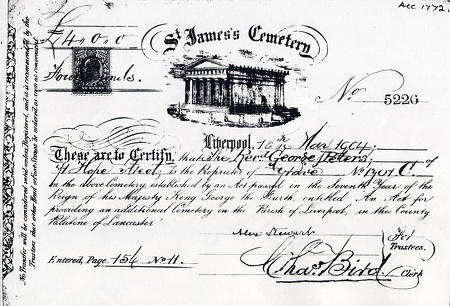 Acc 1772.
£4.0.0
St James's Cemetery
Four Pounds.
No 5226
Liverpool, 16th Mar 1904.
These are to Certify, that the Revd George Peters of
Hope Street, is the Proprietor of Grave No 1301 C.
in the above Cemetery established by an Act passed in the Seventh Year of the
Reign of his Majesty King George the Fourth entitled An Act for
providing an additional Cemetery in the Parish of Liverpool, in the County
Palatine of Lancaster.
Alex Stewart
For Trustees.
Entered, Page 154 No 11.
Chas Bird. Clerk
No Transfer will be considered valid unless Registered, and it is recommended by the
Trustees that